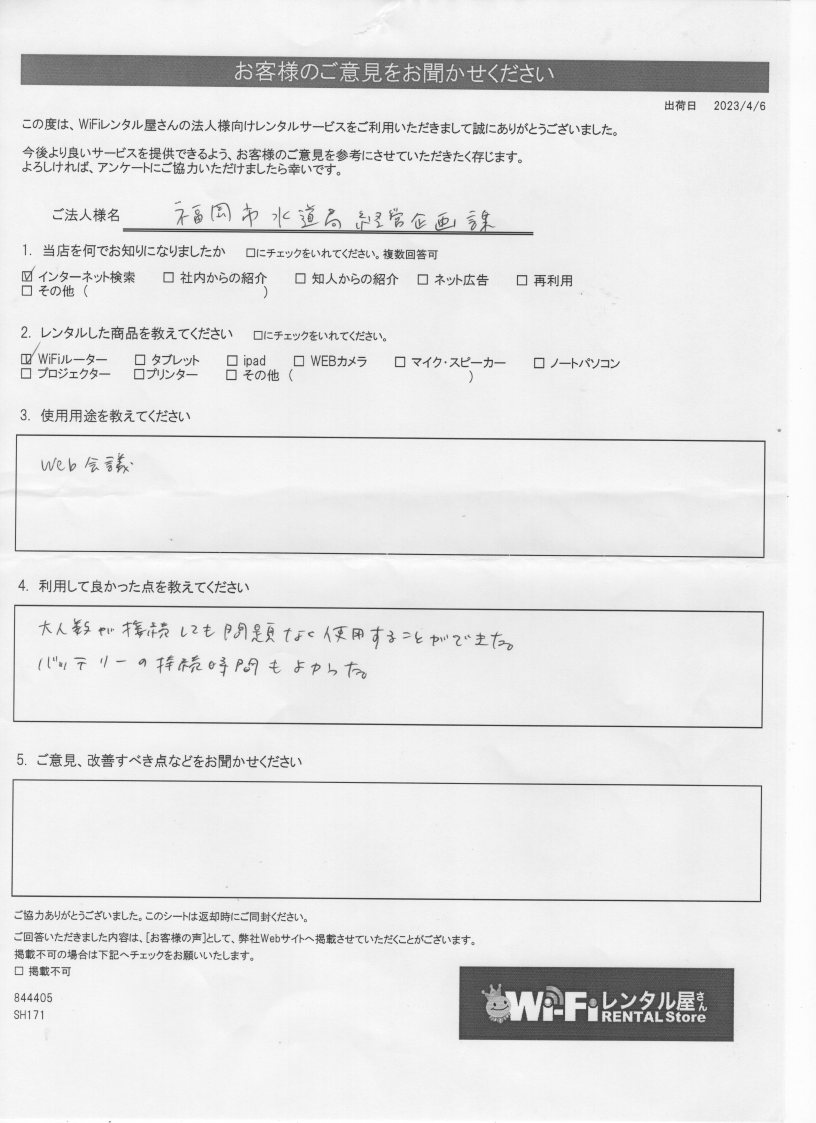 お客様のご意見をお聞かせください
出荷日 2023/4/6
この度は、WiFiレンタル屋さんの法人様向けレンタルサービスをご利用いただきまして誠にありがとうございました。
今後より良いサービスを提供できるよう、お客様のご意見を参考にさせていただきたく存じます。
よろしければ、アンケートにご協力いただけましたら幸いです。
ご法人様名 福岡市水道局 経営企画課
1. 当店を何でお知りになりましたか □にチェックをいれてください。複数回答可
☑ インターネット検索 □ 社内からの紹介 □ 知人からの紹介 □ ネット広告 □ 再利用
□ その他 ( )
2. レンタルした商品を教えてください □にチェックをいれてください。
☑ WiFiルーター □ タブレット □ ipad □ WEBカメラ □ マイク・スピーカー □ ノートパソコン
□ プロジェクター □プリンター □ その他 ( )
3. 使用用途を教えてください
Web会議
4. 利用して良かった点を教えてください
大人数が接続しても問題なく使用することができた。
バッテリーの持続時間もよかった。
5. ご意見、改善すべき点などをお聞かせください
ご協力ありがとうございました。このシートは返却時にご同封ください。
ご回答いただきました内容は、[お客様の声]として、弊社Webサイトへ掲載させていただくことがございます。
掲載不可の場合は下記へチェックをお願いいたします。
□ 掲載不可
844405
SH171
Wi-Fiレンタル屋さん
RENTAL Store